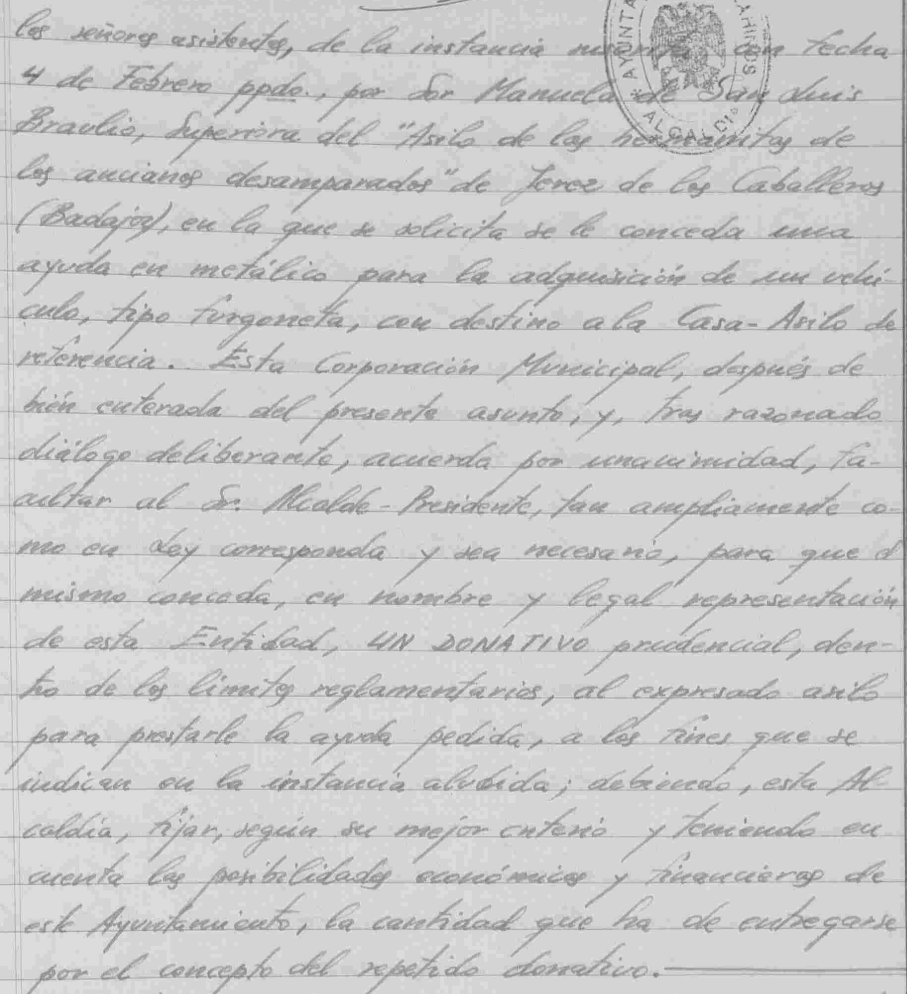 los señores asistentes, de la instancia suscrita, con fecha
4 de Febrero ppdo., por Sor Manuela de San Luis
Braulio, Superiora del "Asilo de los hermanitos de
los ancianos desamparados" de Jerez de los Caballeros
(Badajoz), en la que se solicita se le conceda una
ayuda en metálico para la adquisición de un vehí-
culo, tipo furgoneta, con destino a la Casa-Asilo de
referencia. Esta Corporación Municipal, después de
bién enterada del presente asunto, y, tras razonado
diálogo deliberante, acuerda por unanimidad, fa-
cultar al Sr. Alcalde-Presidente, tan ampliamente co-
mo en Ley corresponda y sea necesario, para que el
mismo conceda, en nombre y legal representación
de esta Entidad, UN DONATIVO prudencial, den-
tro de los límites reglamentarios, al expresado asilo
para prestarle la ayuda pedida, a los fines que se
indican en la instancia aludida; debiendo, esta Al-
caldía, fijar, según su mejor criterio y teniendo en
cuenta las posibilidades económicas y financieras de
este Ayuntamiento, la cantidad que ha de entregarse
por el concepto del repetido donativo.
AYUNTA
ALCALDIA